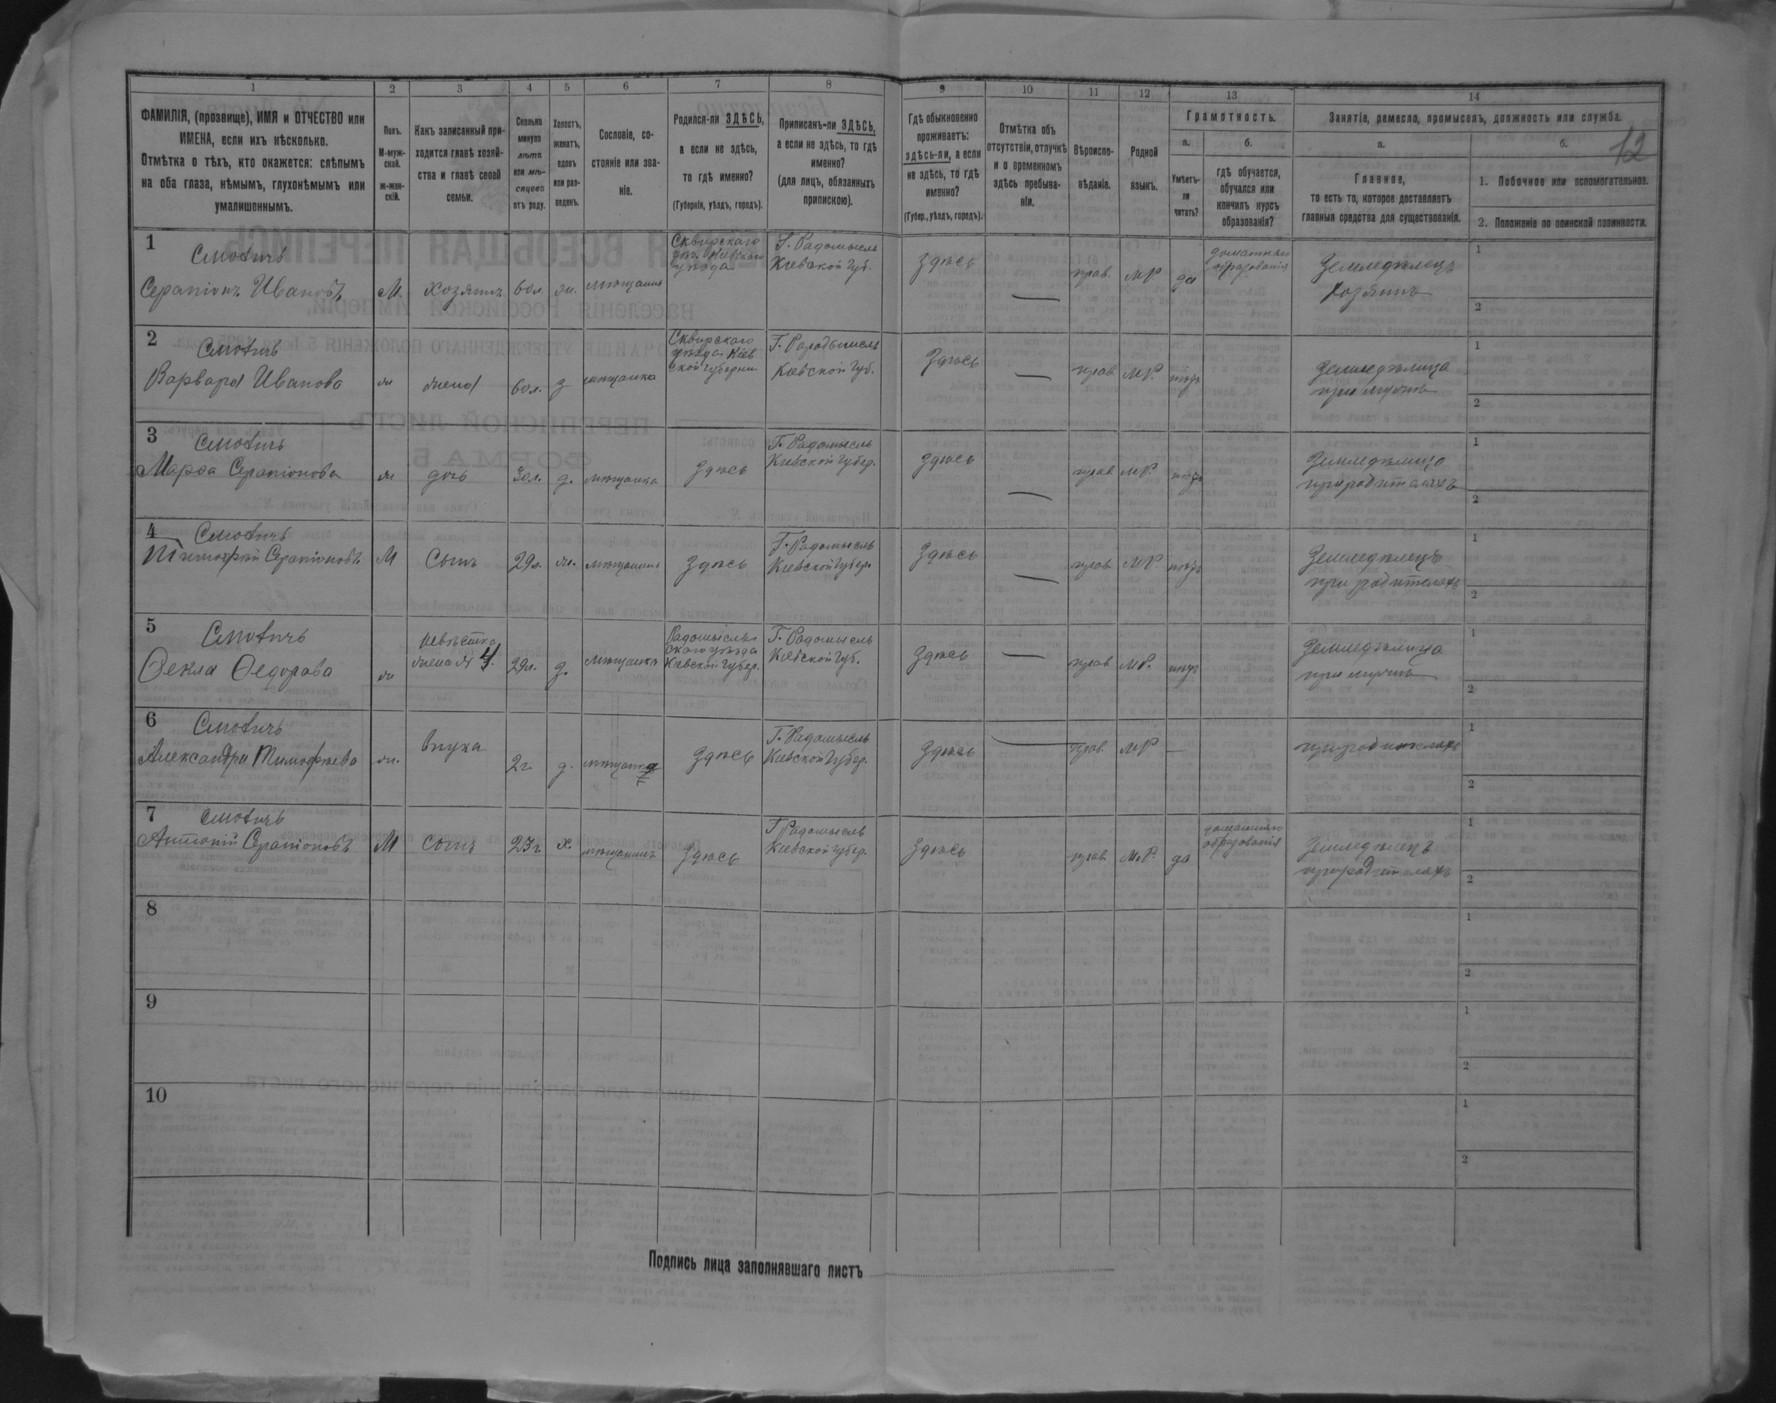 1 2 3 4 5 6 7 8 9 10 11 12 13 14
ФАМИЛІЯ, (прозвище), ИМЯ и ОТЧЕСТВО или
ИМЕНА, если ихъ нѣсколько.
Отмѣтка о тѣхъ, кто окажется: слѣпымъ
на оба глаза, нѣмымъ, глухонѣмымъ или
умалишоннымъ.
Полъ.
М-муж-
ской.
ж-жен-
скій.
Какъ записанный при-
ходится главѣ хозяй-
ства и главѣ своей
семьи.
Сколько
минуло
лѣтъ
или мѣ-
сяцевъ
отъ роду.
Холостъ,
женатъ,
вдовъ
или раз-
веденъ.
Сословіе, со-
стояніе или зва-
ніе.
Родился-ли ЗДѢСЬ,
а если не здѣсь,
то гдѣ именно?
(Губернія, уѣздъ, городъ).
Приписанъ-ли ЗДѢСЬ,
а если не здѣсь, то гдѣ
именно?
(для лицъ, обязанныхъ
припискою).
Гдѣ обыкновенно
проживаетъ:
здѣсь-ли, а если
не здѣсь, то гдѣ
именно?
(Губер., уѣздъ, городъ).
Отмѣтка объ
отсутствіи, отлучкѣ
и о временномъ
здѣсь пребыва-
ніи.
Вѣроиспо-
вѣданіе.
Родной
языкъ.
Грамотность.
а.
Умѣетъ-
ли
читать?
б.
гдѣ обучается,
обучался или
кончилъ курсъ
образованія?
Занятіе, ремесло, промыселъ, должность или служба.
а.
Главное,
то есть то, которое доставляетъ
главныя средства для существованія.
б.
12
1. Побочное или вспомогательное.
2. Положеніе по воинской повинности.
1
Смотичъ
Серапіонъ Ивановъ
М. хозяинъ 60л. ж. мѣщанинъ
Сквирскаго
уѣзда
Г. Радомысль
Кіевской Губ.
Здѣсь — прав. МР. да
домашнее
образованія
Земледѣлецъ
хозяинъ
1
2
2
Смотичъ
Варвара Иванова
ж жена 60л. з мѣщанка
Сквирскаго
уѣзда Кіев
ской губерніи
Г. Радомысль
Кіевской Губ.
Здѣсь — прав. МР. нѣтъ
Земледѣлица
при мужѣ
1
2
3
Смотичъ
Марѳа Серапіонова
ж дочь 30л. д. мѣщанка Здѣсь
Г. Радомысль
Кіевской Губер.
Здѣсь — прав МР. нѣтъ
Земледѣлица
при родителяхъ
1
2
4
Смотичъ
Тимофей Серапіоновъ
М Сынъ 29л. ж. мѣщанинъ Здѣсь
Г. Радомысль
Кіевской Губер
Здѣсь — прав МР. нѣтъ
Земледѣлецъ
при родителяхъ
1
2
5
Смотичъ
Ѳекла Ѳедорова
ж
невѣстка
жена 4
29л. з. мѣщанка
Радомысль-
скаго уѣзда
Кіевской Губер.
Г. Радомысль
Кіевской Губ.
Здѣсь — прав МР. нѣтъ
Земледѣлица
при мужѣ
1
2
6
Смотичъ
Александра Тимофѣева
ж. внука 2г. д. мѣщанка Здѣсь
Г. Радомысль
Кіевской Губер.
Здѣсь — прав МР —
при родителяхъ
1
2
7
Смотичъ
Антоній Серапіоновъ
М Сынъ 23г х. мѣщанинъ Здѣсь
Г Радомысль
Кіевской Губер.
Здѣсь прав. М.Р. да
домашнее
образованія
Земледѣлецъ
при родителяхъ
1
2
8
1
2
9
1
2
10
1
2
Подпись лица заполнявшаго листъ